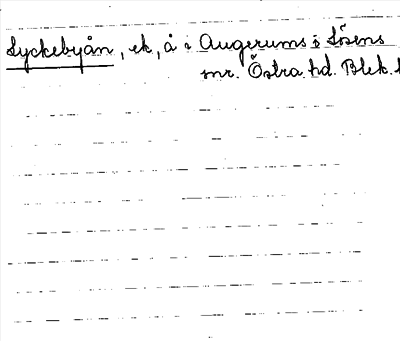 Lyckebyån, ek, å i Augerums o Lösens
snr. Östra hd. Blek. l